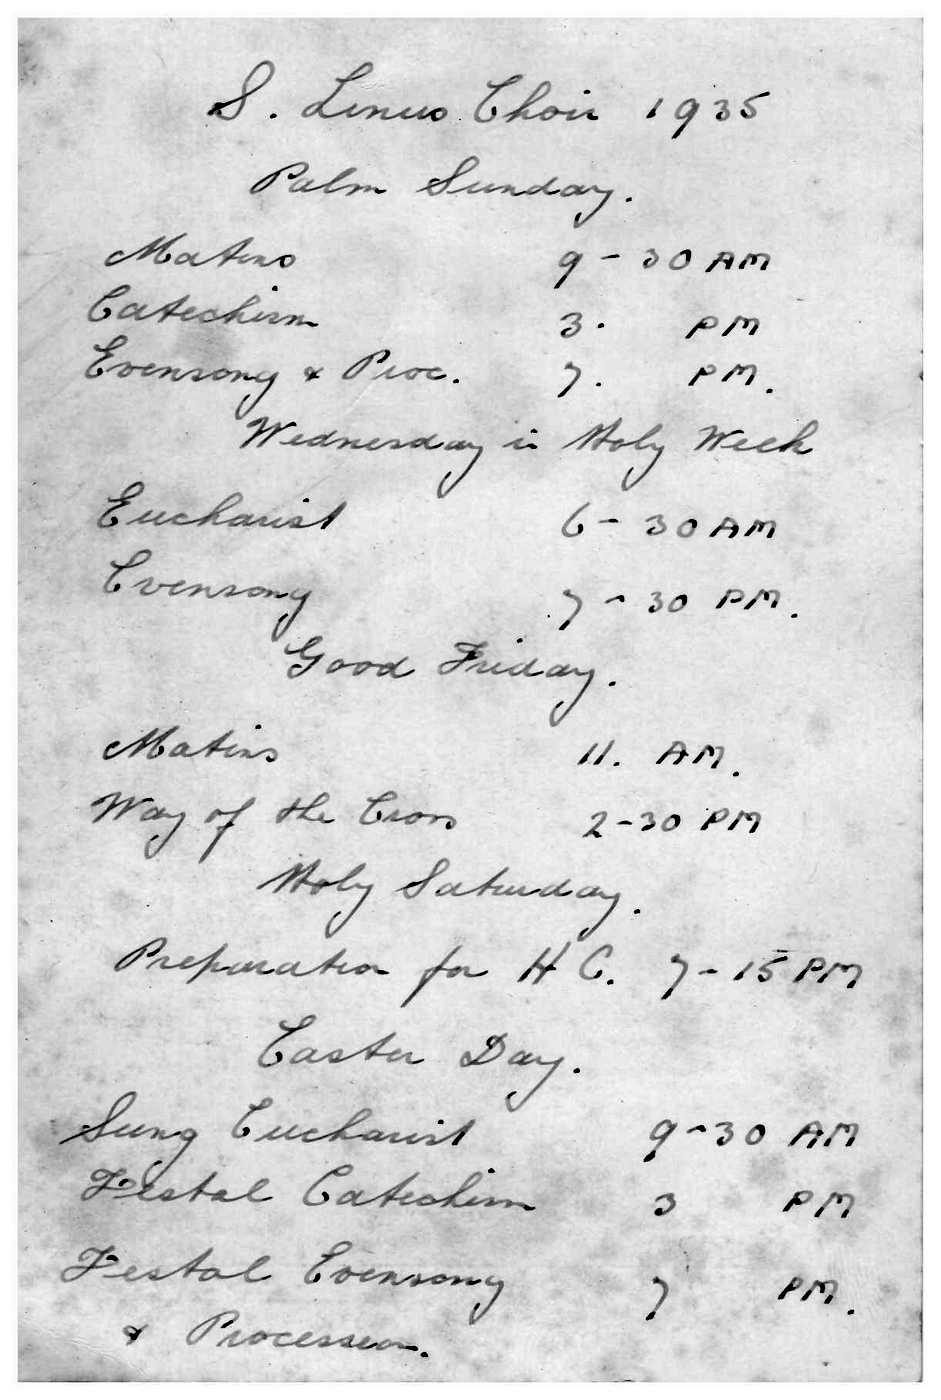 S. Linus Choir 1935
Palm Sunday.
Matins 9-30 AM
Catechism 3. PM
Evensong & Proc. 7. PM.
Wednesday in Holy Week
Eucharist 6-30 AM
Evensong 7-30 PM.
Good Friday.
Matins 11. AM.
Way of the Cross 2-30 PM
Holy Saturday.
Preparation for H C. 7-15 PM
Easter Day.
Sung Eucharist 9-30 AM
Festal Catechism 3 PM
Festal Evensong 7 PM.
& Procession.